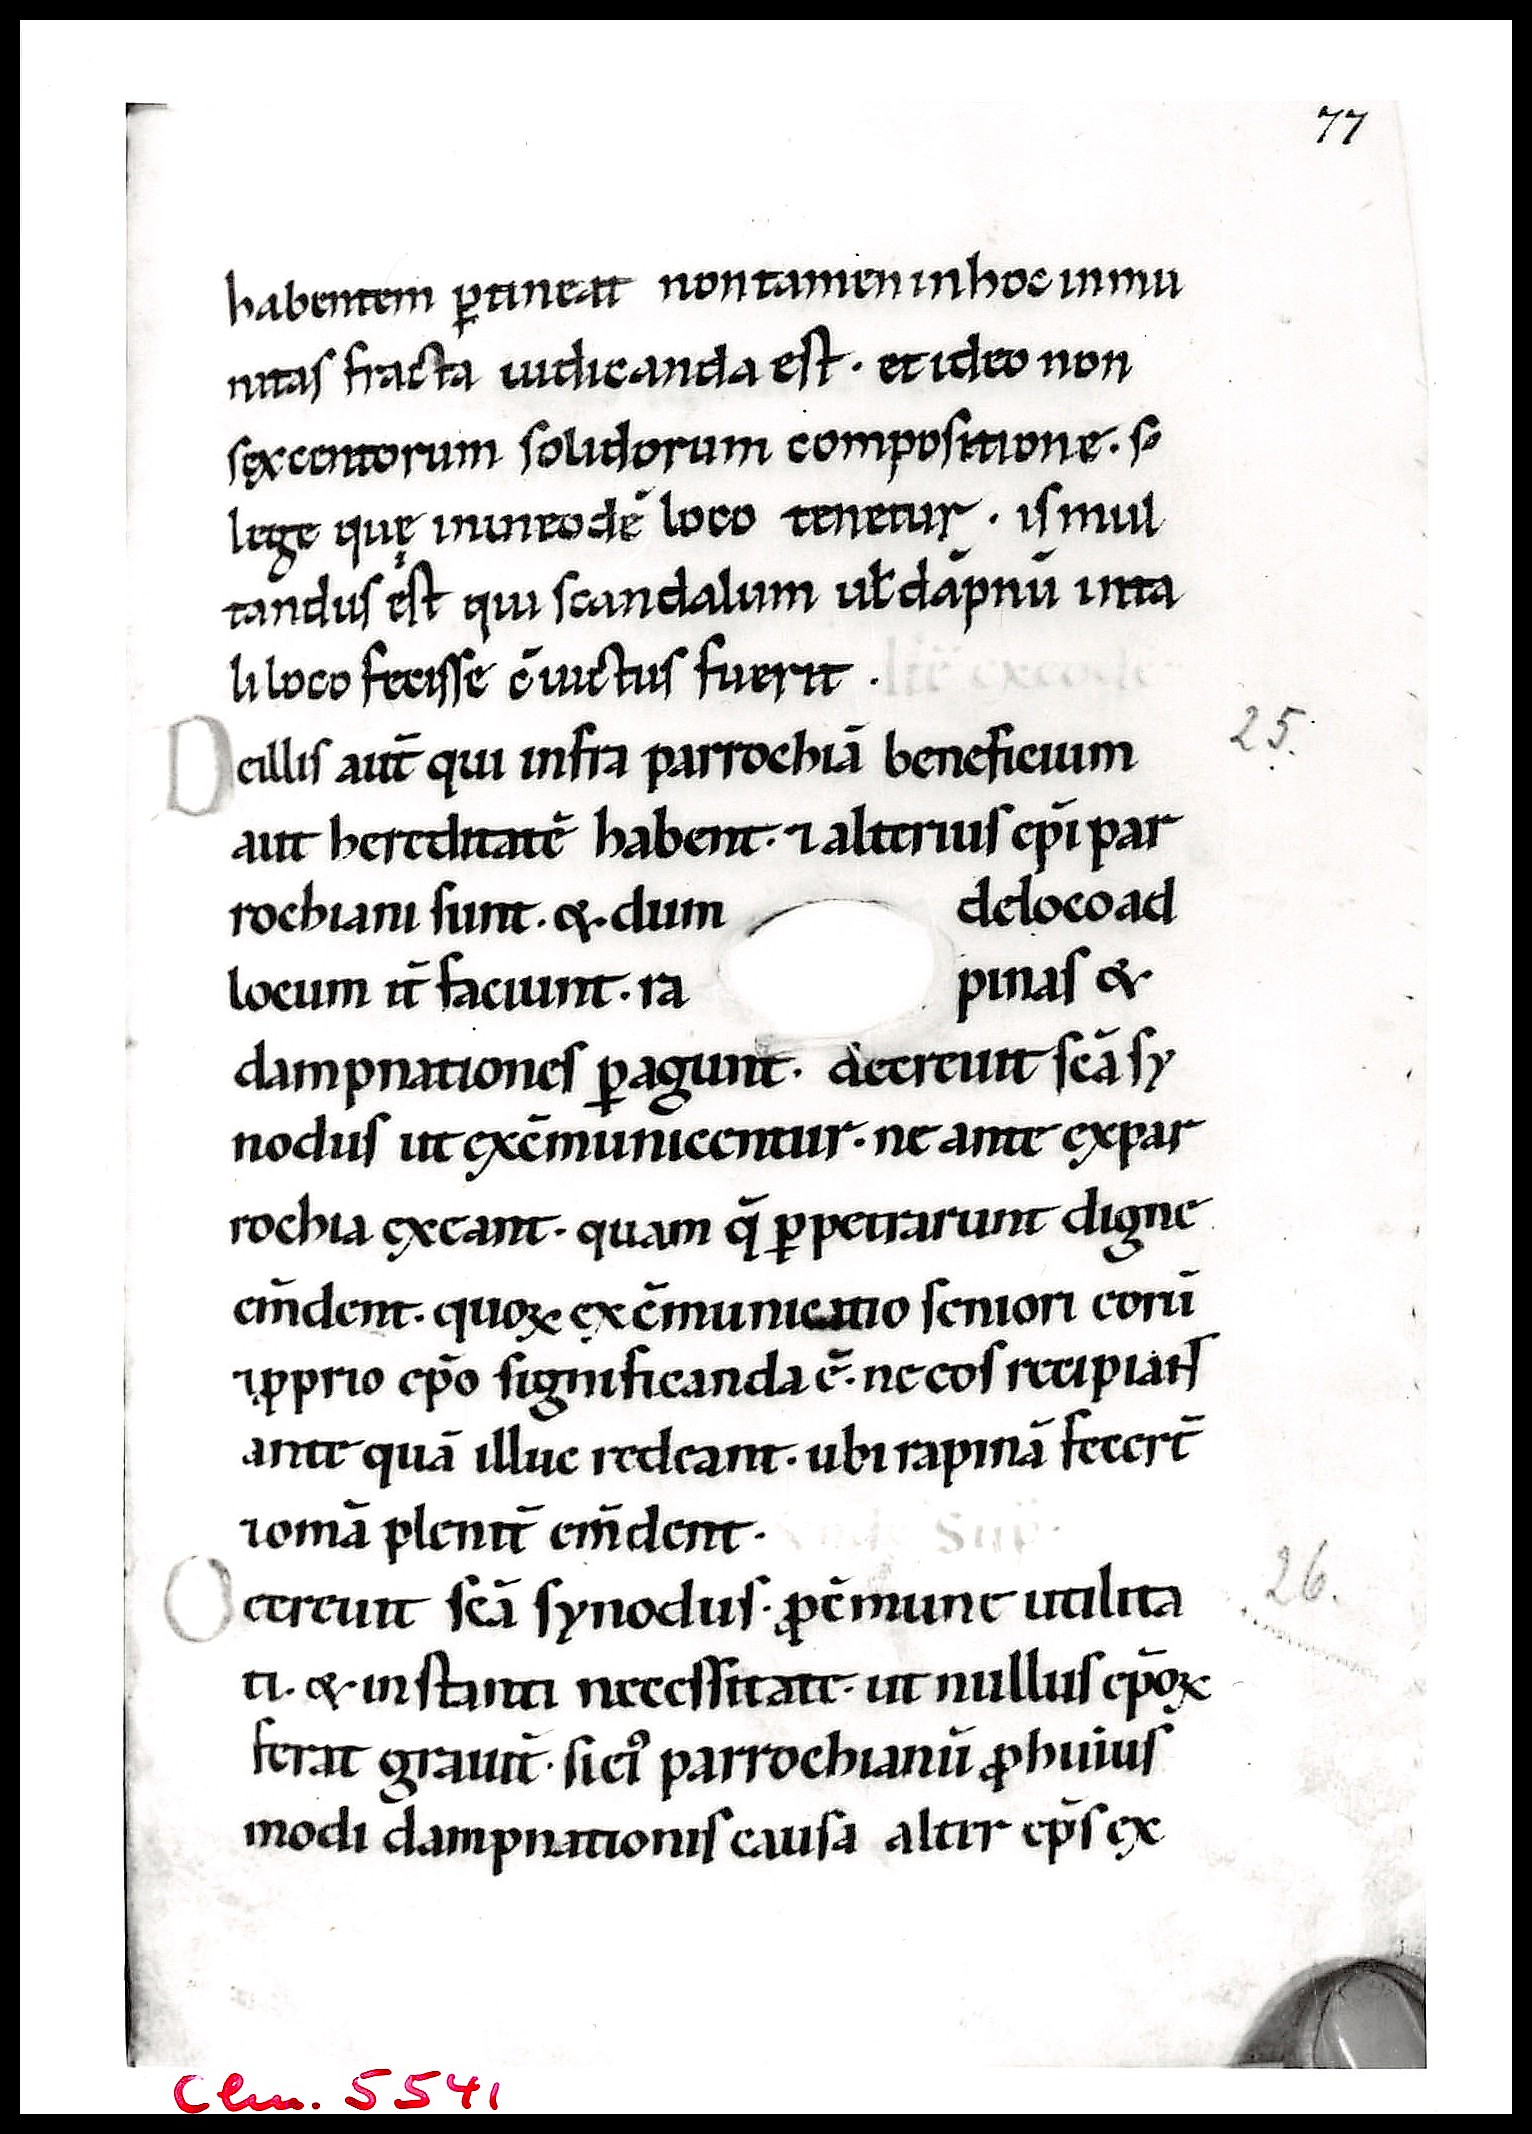 77
habentem ꝑtineat non tamen in hoc inmu
nitas fracta iudicanda est · et ideo non
sexcentorum solidorum compositione · sꝫ
lege quę inineodē loco tenetur · is mul
tandus est qui scandalum uł dāpnū inta
li loco fecisse c̄uictus fuerit ·
25.
D eillis aut̄ qui infra parrochiā beneficium
aut hereditatē habent · ⁊ alterius ep̄i par
rochiani sunt · & dum deloco ad
locum it̄ faciunt · ra pinas &
dampnationes ꝑagunt · decreuit sc̄a sy
nodus ut exc̄municentur · ne ante expar
rochia exeant · quam q̄ ꝑpetrarunt digne
em̄dent · quoꝝ exc̄municatio seniori eorū
⁊ ꝓprio ep̄o significanda ē · ne eos recipiant
ante quā illuc redeant · ubi rapinā fecer̄t
⁊ omā plenit̄ em̄dent ·
26.
D ecreuit sc̄a synodus · ꝓ c̄mune utilita
ti · & instanti necessitate · ut nullus ep̄oꝝ
ferat grauit̄ · si eiꝰ parrochianū ꝓ huius
modi dampnationis causa alter ep̄s ex
Clm. 5541